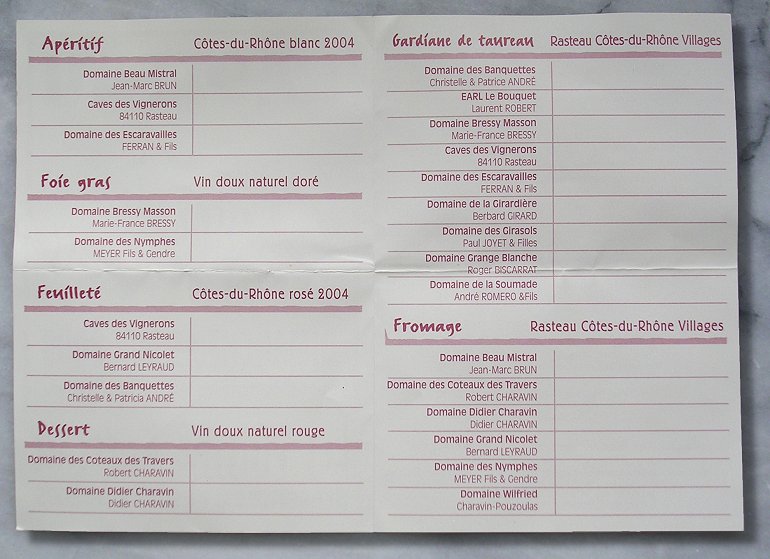 Apéritif Côtes-du-Rhône blanc 2004
Domaine Beau Mistral
Jean-Marc BRUN
Caves des Vignerons
84110 Rasteau
Domaine des Escaravailles
FERRAN & Fils
Foie gras Vin doux naturel doré
Domaine Bressy Masson
Marie-France BRESSY
Domaine des Nymphes
MEYER Fils & Gendre
Feuilleté Côtes-du-Rhône rosé 2004
Caves des Vignerons
84110 Rasteau
Domaine Grand Nicolet
Bernard LEYRAUD
Domaine des Banquettes
Christelle & Patricia ANDRÉ
Dessert Vin doux naturel rouge
Domaine des Coteaux des Travers
Robert CHARAVIN
Domaine Didier Charavin
Didier CHARAVIN
Gardiane de taureau Rasteau Côtes-du-Rhône Villages
Domaine des Banquettes
Christelle & Patrice ANDRÉ
EARL Le Bouquet
Laurent ROBERT
Domaine Bressy Masson
Marie-France BRESSY
Caves des Vignerons
84110 Rasteau
Domaine des Escaravailles
FERRAN & Fils
Domaine de la Girardière
Berbard GIRARD
Domaine des Girasols
Paul JOYET & Filles
Domaine Grange Blanche
Roger BISCARRAT
Domaine de la Soumade
André ROMERO &Fils
Fromage Rasteau Côtes-du-Rhône Villages
Domaine Beau Mistral
Jean-Marc BRUN
Domaine des Coteaux des Travers
Robert CHARAVIN
Domaine Didier Charavin
Didier CHARAVIN
Domaine Grand Nicolet
Bernard LEYRAUD
Domaine des Nymphes
MEYER Fils & Gendre
Domaine Wilfried
Charavin-Pouzoulas